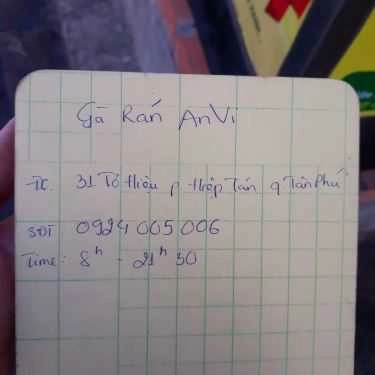 Gà Rán An Vi
ĐC. 31 Tô Hiệu p Hiệp Tân q Tân Phú
SĐT 0924 005 006
Time: 8h - 21h30